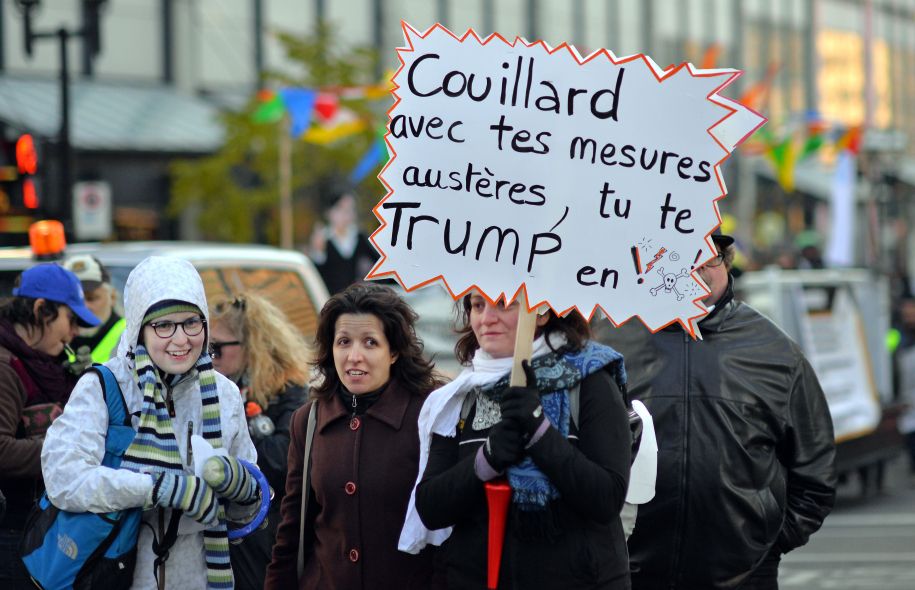 Couillard
avec tes mesures
austères, tu te
Trump' en !